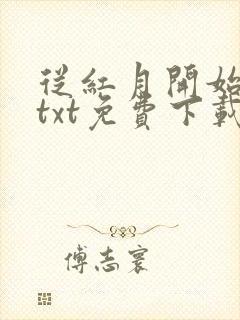 從紅月開始
txt免費下載
傅志寰